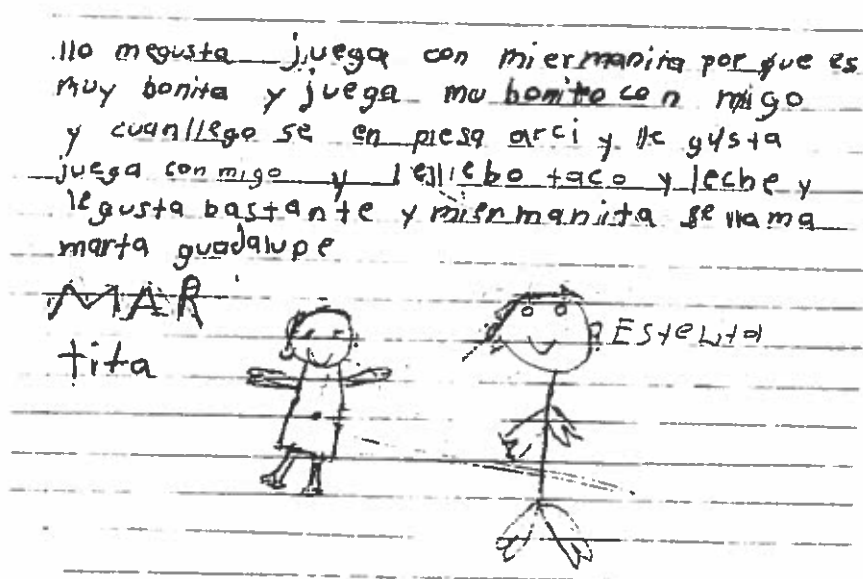 llo megusta juega con miermanita por que es
muy bonita y juega mu bonito con migo
y cuanllego se en piesa arci y le gusta
juega con migo y lelliebo taco y leche y
le gusta bastante y miermanita se llama
marta guadalupe
MAR
tita
Estelita